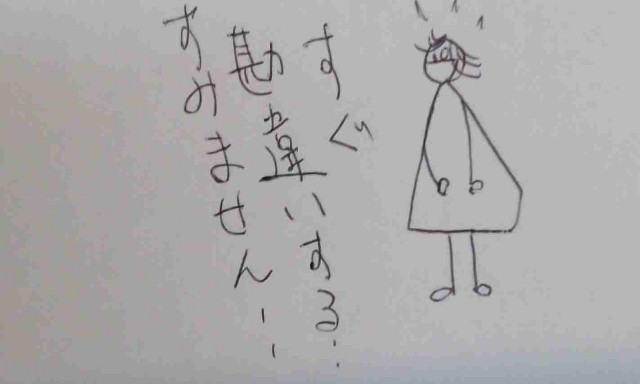 すぐ
勘違いする.
すみません..